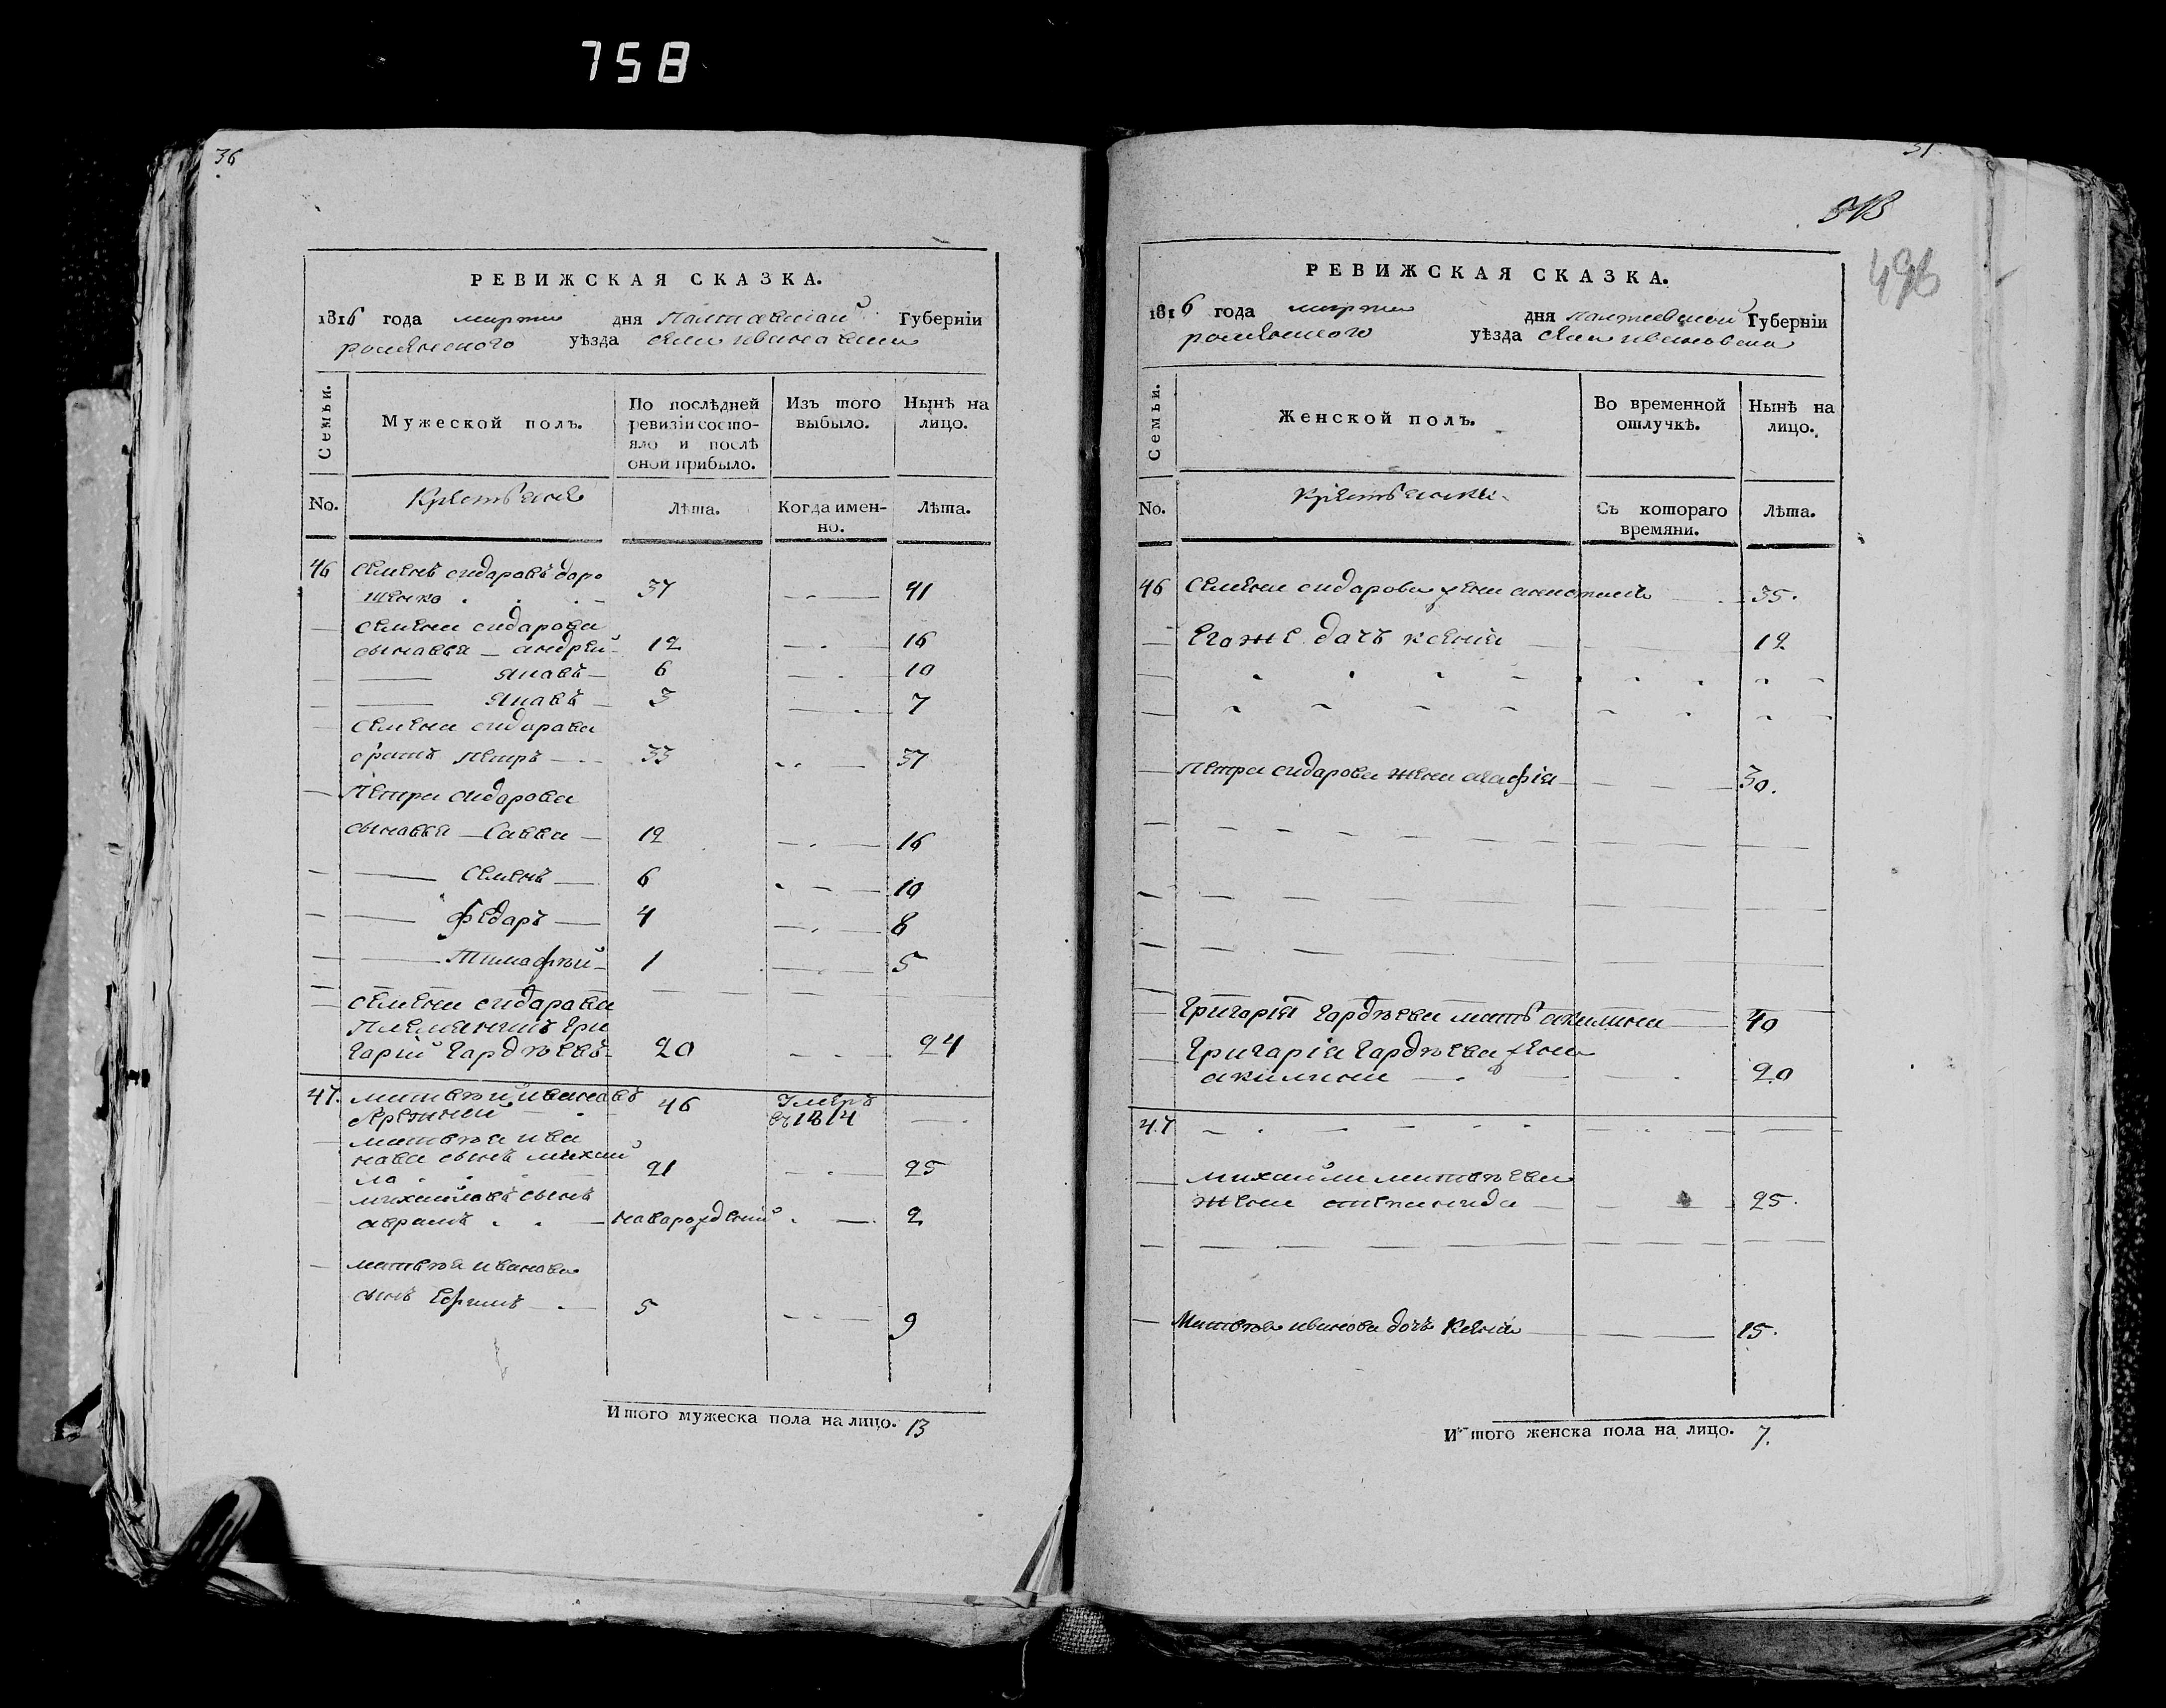 758
36
РЕВИЖСКАЯ СКАЗКА.
1816 года марта дня Палтавской Губерніи
роменского уѣзда села ивановки
Семьи.
Мужеской полъ.
По послѣдней ревизіи состояло и послѣ оной прибыло.
Изъ того выбыло.
Нынѣ на лицо.
No. Крестьяне Лѣта. Когда именно. Лѣта.
46 Семенъ сидаровъ даро
щенко 37 41
семена сидарова
сынавья андрей 12 16
Яковъ 6 10
Яковъ 3 7
Семена сидарова
братъ петръ 33 37
Петра сидарова
сынавья Савва 12 16
Семенъ 6 10
федаръ 4 8
Тимофѣй 1 5
семена сидарова
племянникъ гри
гарій гардѣевъ 20 24
47. матвѣй ивановъ 46 Умеръ
въ 1814
матвѣя ива
нова сынъ михай
ла 21 25
михайловъ сынъ
аврамъ наварожденый 2
матвѣя иванова
сынъ Ефимъ 5 9
Итого мужеска пола на лицо. 13
37
496
РЕВИЖСКАЯ СКАЗКА.
1816 года марта дня полтавской Губерніи
роменского уѣзда села ивановки
Семьи.
Женской полъ.
Во временной отлучкѣ.
Нынѣ на лицо.
No. крестьянки Съ котораго времяни. Лѣта.
46 Семена сидарова жена 35.
Егоже дочъ ксенія 12
Петра сидарова жена агафія 30.
Григорія гардѣева мать акилина 40
Григарія гардѣева жена
акилина 20
47
михайли матвѣева
жена степанида 25.
Матвѣя иванова дочъ Ксенія 15.
Итого женска пола на лицо. 7.